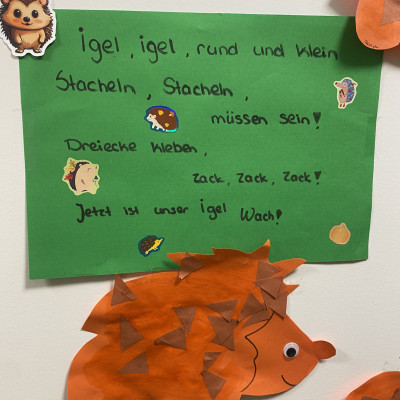 igel, igel, rund und klein
Stacheln, Stacheln,
müssen sein!
Dreiecke kleben,
zack, zack, zack!
Jetzt ist unser igel Wach!